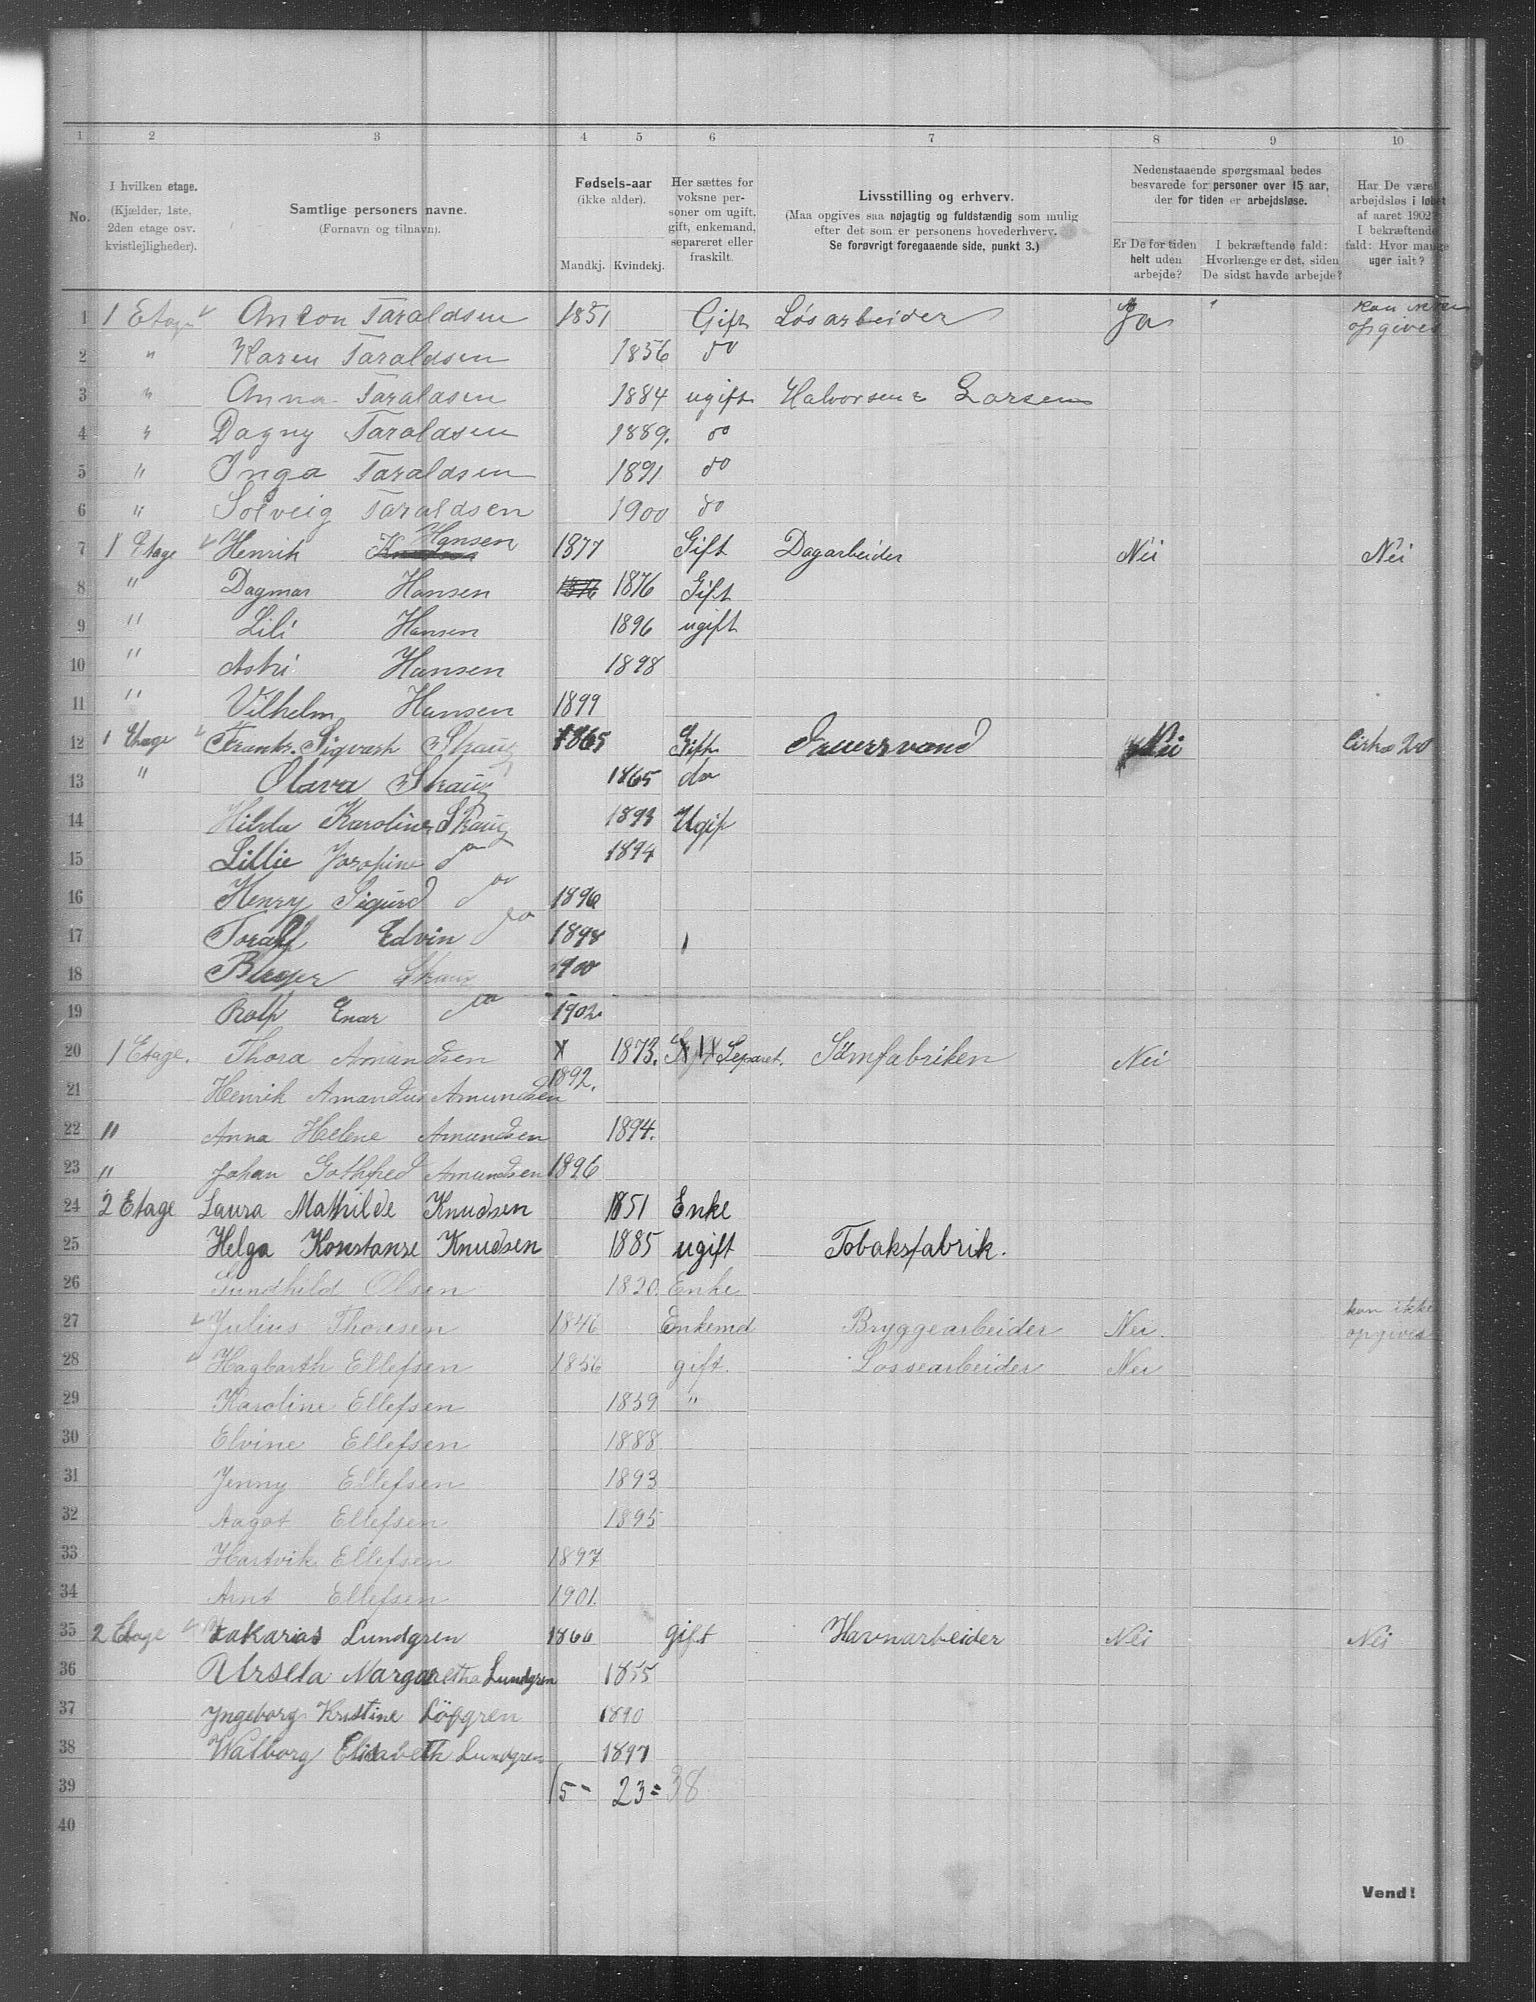 1 2 3 4 5 6 7 8 9 10
No.
I hvilken etage.
(Kjælder, 1ste,
2den etage osv.
kvistlejligheder).
Samtlige personers navne.
(Fornavn og tilnavn).
Fødsels-aar
(ikke alder).
Mandkj. Kvindekj.
Her sættes for
voksne per-
soner om ugift,
gift, enkemand,
separeret eller
fraskilt.
Livsstilling og erhverv.
(Maa opgives saa nøjagtig og fuldstændig som mulig
efter det som er personens hovederhverv.
Se forøvrigt foregaaende side, punkt 3.)
Nedenstaaende spørgsmaal bedes
besvarede for personer over 15 aar,
der for tiden er arbejdsløse.
Er De for tiden
helt uden
arbejde?
I bekræftende fald:
Hvorlænge er det, siden
De sidst havde arbejde?
Har De være
arbejdsløs i løbet
af aaret 1902?
I bekræftende
fald: Hvor mange
uger ialt?
1 1 Etage Anton Taraldsen 1851 Gift Løsarbeider Ja kan ikke opgives
2 " Karen Taraldsen 1856 do
3 " Anna Taraldsen 1884 ugift Halvorsen & Larsen
4 " Dagny Taraldsen 1889. do
5 " Inga Taraldsen 1891 do
6 " Solveig Taraldsen 1900 do
7 1 Etage Henrik Hansen 1877 Gift Dagarbeider Nei Nei
8 " Dagmar Hansen 1876 Gift
9 " Lili Hansen 1896 ugift
10 " Astri Hansen 1898
11 " Vilhelm Hansen 1899
12 1 Etage Frantz. Sigvart Skaug 1865 Gift Nei Cirka 20
13 " Olava Skaug 1865 do
14 Hilda Karoline Skaug 1893 Ugif
15 Lillie Josefine do 1894
16 Henry Sigurd do 1896
17 Toralf Edvin do 1898
18 Birger Skaug 1900
19 Rolf Enar do 1902
20 1 Etage. Thora Amundsen 1873. Separet. Sømfabriken Nei
21 Henrik Amandus Amundsen 1892.
22 " Anna Helene Amundsen 1894.
23 " Johan Gothfred Amundsen 1896
24 2 Etage Laura Mathilde Knudsen 1851 Enke
25 Helga Konstanse Knudsen 1885 ugift Tobaksfabrik.
26 Gundhild Olsen 1820. Enke
27 Julius Thoresen 1846 Enkemd Bryggearbeider Nei. kan ikke opgives
28 Hagbarth Ellefsen 1856 gift. Lossearbeider Nei
29 Karoline Ellefsen 1859 "
30 Elvine Ellefsen 1888
31 Jenny Ellefsen 1893
32 Aagot Ellefsen 1895
33 Hartvik Ellefsen 1897
34 Arnt Ellefsen 1901.
35 2 Etage Zakarias Lundgren 1866 gift Havnarbeider Nei Nei
36 Ursela Margaretha Lundgren 1855
37 Yngeborg Kristine Löfgren 1890
38 Walborg Elisabeth Lundgren 1897
39 15 - 23 = 38
40
Vend!